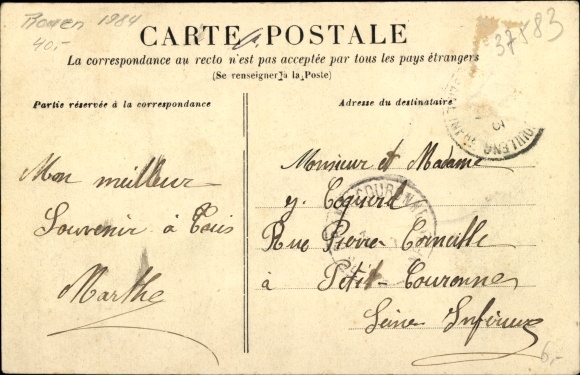 Rouen 1984
40,-
37583
CARTE POSTALE
La correspondance au recto n'est pas acceptée par tous les pays étrangers
(Se renseigner à la Poste)
Partie réservée à la correspondance
Adresse du destinataire
Mon meilleur
Souvenir à Tous
Marthe
Monsieur et Madame
Y. Coquerel
Rue Pierre Corneille
à Petit-Couronne
Seine Inférieure
6,-